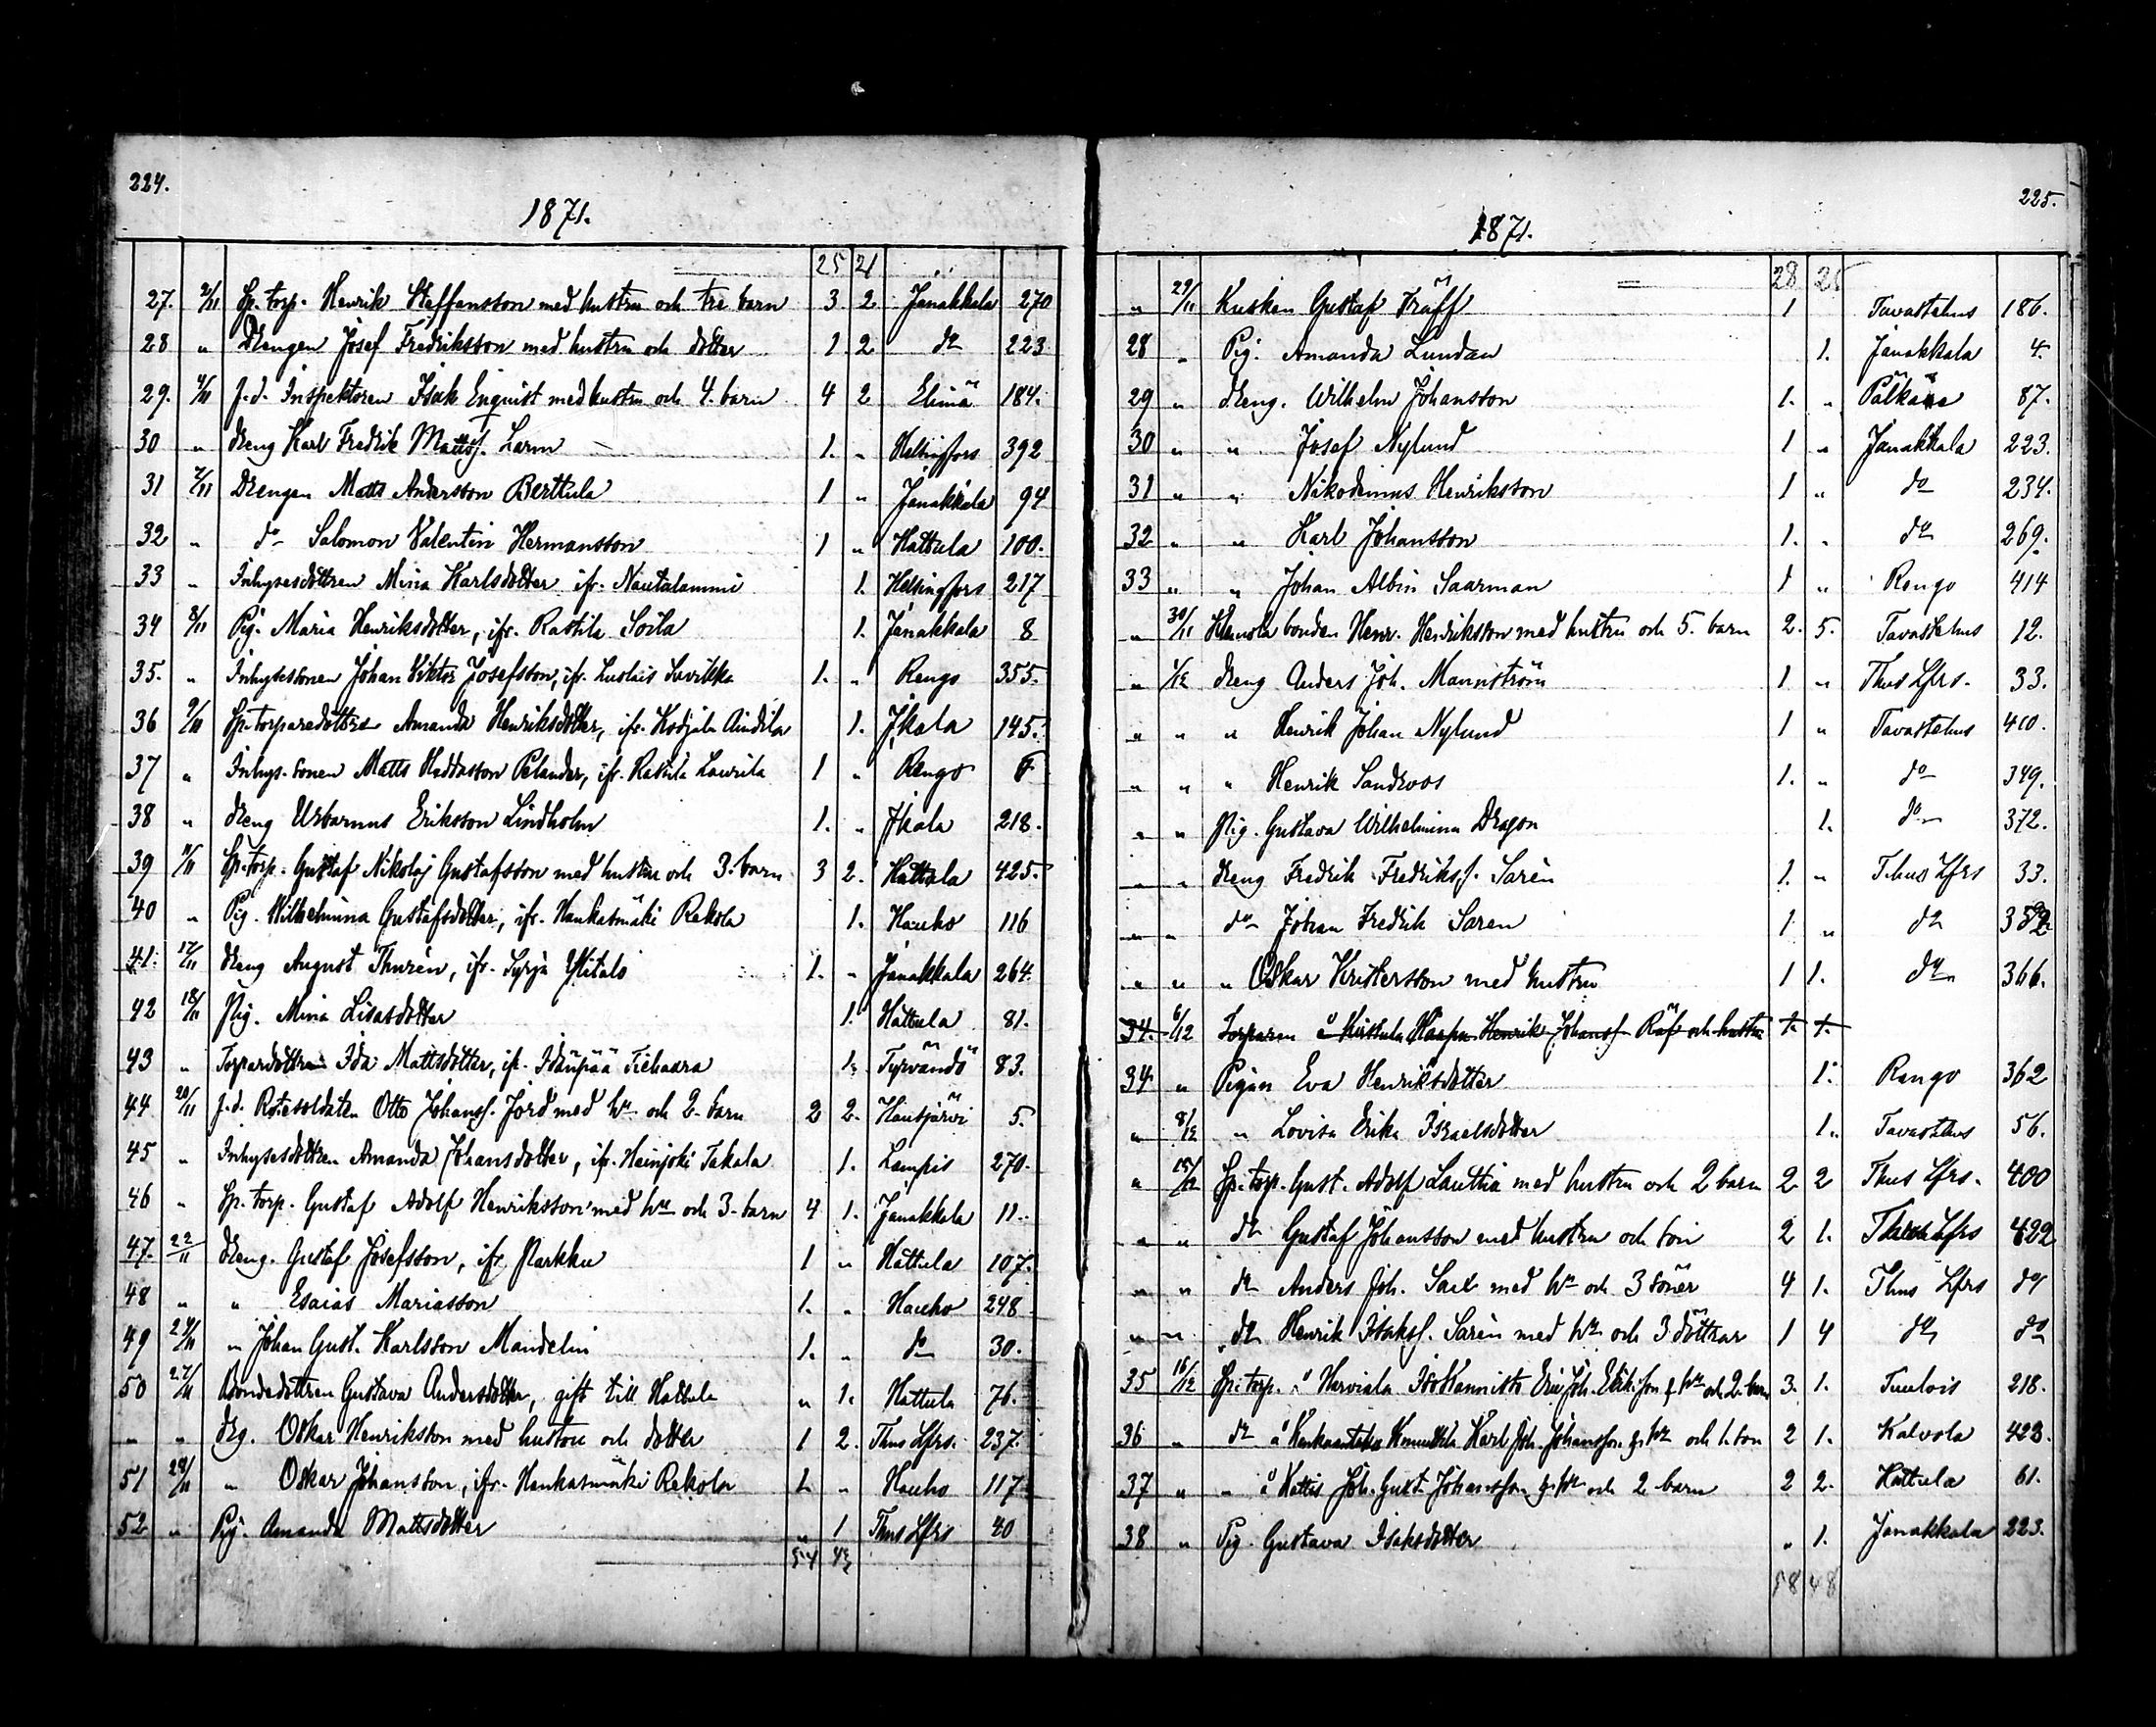 224.
1871.
25 21
27. 2/11 Sp. torp. Henrik Steffansson med hustru och tre barn 3 2 Janakkala 270
28 " Drengen Josef Fredriksson med hustru och dotter 1. 2 do 223
29. 4/11 f.d. Inspektoren Isak Enqvist med hustru och 4. barn 4 2 Elimä 184.
30 " dreng Karl Fredrik Mattss. Larm 1. " Helsingfors 392
31 7/11 Drengen Matts Andersson Berttula 1 " Janakkala 94
32 " do Salomon Valentin Hermansson 1 " Hattula 100.
33 " Inhysesdottren Mina Karlsdotter ifr. Nautalammi 1. Helsingfors 217
34 8/11 Pig. Maria Henriksdotter, ifr. Rastila Soila 1. Janakkala 8
35. " Inhysessonen Johan Viktor Josefsson, ifr. 1. " Rengo 355.
36 9/11 Sp. torparedottren Amanda Henriksdotter, ifr. 1. Jkala 145.
37 " Inhys. sonen Matts Pelander, ifr. Rastila Laurila 1 " Rengo
38 " dreng Urbanus Eriksson Lindholm 1. " Jkala 218.
39 11/11 Sp. torp. Gustaf Nikolaj Gustafsson med hustru och 3. barn 3 2. Hattula 425.
40 " Pig. Wilhelmina Gustafsdotter, ifr. Hankasmäki Rekola 1. Hauho 116
41. 17/11 dreng August Thurén, ifr. Syrjä Ylitalo 1. " Janakkala 264.
42 18/11 Pig. Mina Lisasdotter 1. Hattula 81.
43 " Torpardottren Ida Mattsdotter, ifr. Idänpää Tiehaara 1. Tyrvändö 83.
44. 20/11 f.d. Rotesoldaten Otto Johanss. Jord med hu och 2. barn 2 2. Hausjärvi 5.
45 " Inhysesdottren Amanda Johansdotter, ifr. Heinjoki Takala 1. Lampis 270.
46 " Sp. torp. Gustaf Adolf Henriksson med hu och 3. barn 4 1. Janakkala 11.
47. 22/11 dreng. Gustaf Josefsson, ifr. Parkku 1 " Hattula 107.
48 " " Esaias Mariasson 1. " Hauho 248
49 24/11 " Johan Gust. Karlsson Mandelin 1. " do 30.
50 27/11 Bondedottren Gustava Andersdotter, gift till Hattula " 1. Hattula 76.
" " drg. Oskar Henriksson med hustru och dotter 1 2. Thus Lfrs. 237.
51 28/11 " Oskar Johansson, ifr. Hankasmäki Rekola 1. " Hauho 117
52 " Pig. Amanda Mattsdotter " 1 Thus Lfrs 40
54 42
225.
1871.
28 25
" 29/11 Kusken Gustaf Träff 1 Tavastehus 186.
28 " Pig. Amanda Lundan 1. Janakkala 4.
29 " dreng. Wilhelm Johansson 1. " Pälkäne 87.
30 " " Josef Nylund 1 " Janakkala 223.
31 " " Nikodemus Henriksson 1 " do 234.
32 " " Karl Johansson 1. " do 269.
33 " " Johan Albin Saarman 1 " Rengo 414
" 30/11 bonden Henr. Henriksson med hustru och 5. barn 2. 5. Tavastehus 12.
" 1/12 dreng Anders Joh. Mannström 1 " Thus Lfrs. 33.
" " " Henrik Johan Nylund 1 " Tavastehus 410.
" " " Henrik Sandroos 1. " do 349.
" " Pig. Gustava Wilhelmina Dragon 1. do 372.
" " dreng Fredrik Fredrikss. Sarén 1. " Thus Lfrs 33.
" " do Johan Fredrik Saren 1. " do
" " " Oskar Kristersson med hustru 1 1. do 366.
34. 6/12 Torparen å Henrik Johanss. Räf och hustru 1. 1.
34 " Pigan Eva Henriksdotter 1. Rengo 362
" 8/12 " Lovisa Erika Israelsdotter 1. Tavastehus 56.
" 15/12 Sp. torp. Gust. Adolf Lauttia med hustru och 2 barn 2 2 Thus Lfrs. 400
" " do Gustaf Johansson med hustru och son 2 1. Thus Lfrs 422
" " do Anders Joh. Sarl med hu och 3 söner 4 1. Thus Lfrs do
" " do Henrik Isakss. Sarén med hu och 3 döttrar 1 4 do do
35 16/12 Sp. torp. å Harviala Erik Joh. hu och 2. barn 3. 1. Tuulois 218.
36 " do å Karl Joh. Johansson hu och 1. son 2 1. Kalvola 423.
37 " " å Kattis Joh. Gust. Johansson hu och 2 barn 2 2. Hattula 61.
38 " Pig. Gustava Isaksdotter " 1. Janakkala 223.
58 48